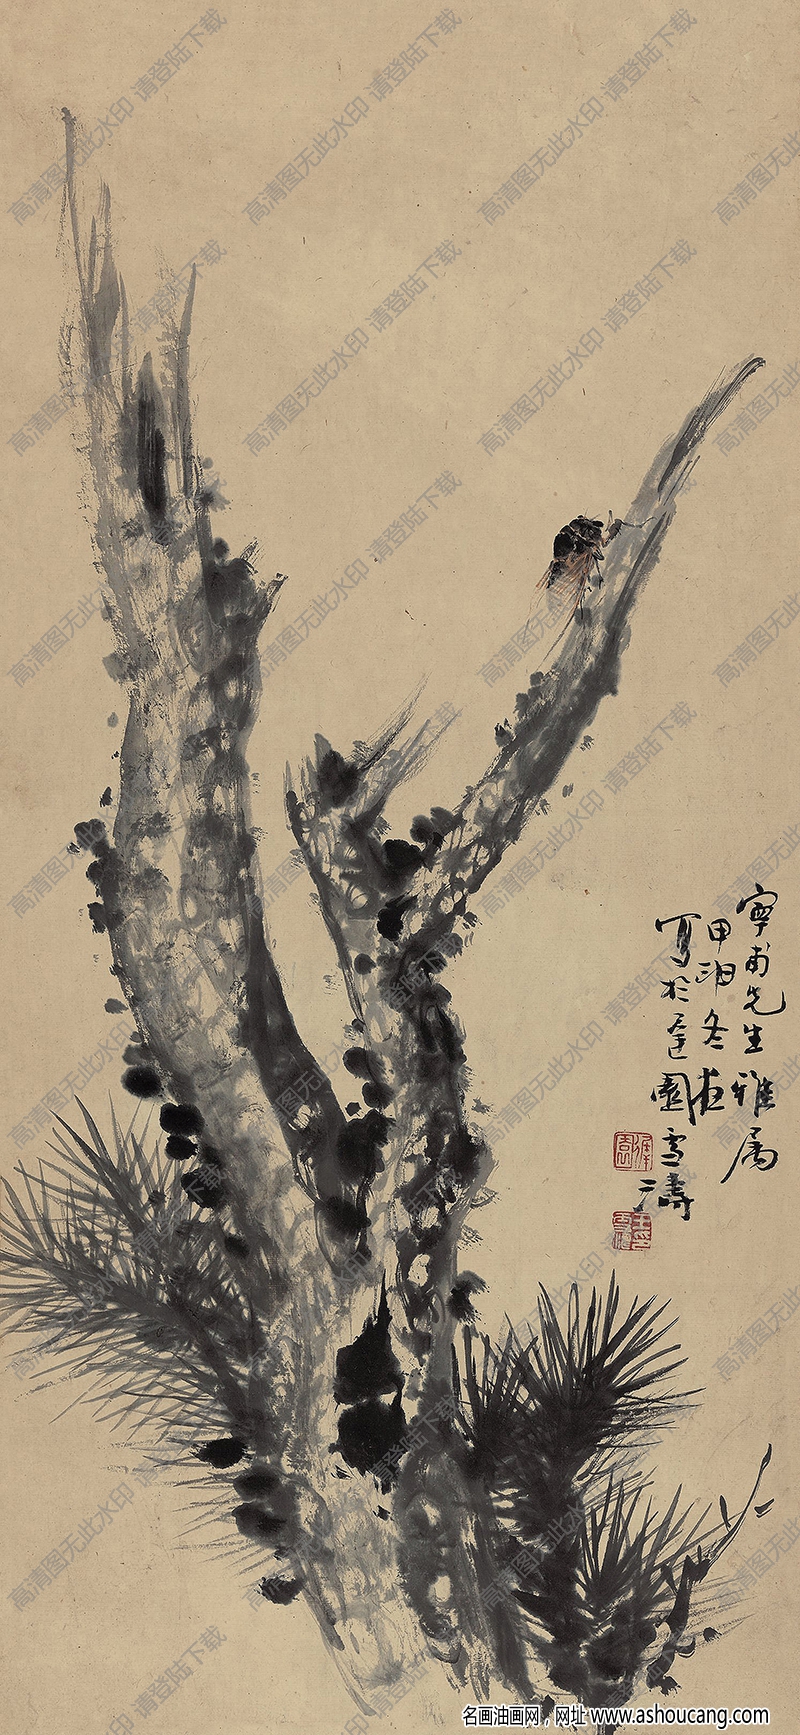 寧甫先生雅属
甲申冬
写於
園雪濤
高清图无此水印 请登陆下载
名画油画网，网址 www.ashoucang.com